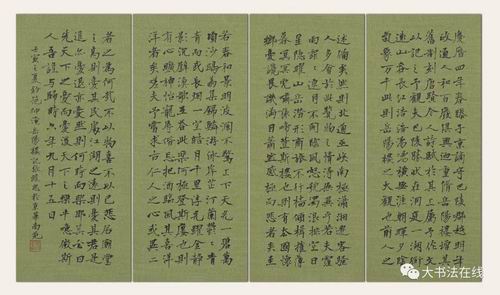 慶曆四年春滕子京謫守巴陵郡越明年
政通人和百廢俱興乃重修岳陽樓增其
舊制刻唐賢今人詩賦於其上屬予作文
以記之予觀夫巴陵勝狀在洞庭一湖銜
遠山吞長江浩浩湯湯橫無際涯朝暉夕陰
氣象萬千此則岳陽樓之大觀也前人之
述備矣然則北通巫峽南極瀟湘遷客騷
人多會於此覽物之情得無異乎若夫霪
雨霏霏連月不開陰風怒號濁浪排空日
星隱曜山岳潛形商旅不行檣傾楫摧薄
暮冥冥虎嘯猿啼登斯樓也則有去國懷
鄉憂讒畏譏滿目蕭然感極而悲者矣至
若春和景明波瀾不驚上下天光一碧萬
頃沙鷗翔集錦鱗游泳岸芷汀蘭郁郁青
青而或長煙一空皓月千里浮光躍金靜
影沉璧漁歌互答此樂何極登斯樓也則
有心曠神怡寵辱偕忘把酒臨風其喜洋
洋者矣嗟夫予嘗求古仁人之心或異二
者之為何哉不以物喜不以己悲居廟堂
之高則憂其民處江湖之遠則憂其君是
進亦憂退亦憂然則何時而樂耶其必曰
先天下之憂而憂後天下之樂而樂乎噫微斯
人吾誰與歸時六年九月十五日
壬寅之夏鈔范仲淹岳陽樓記
大书法在线